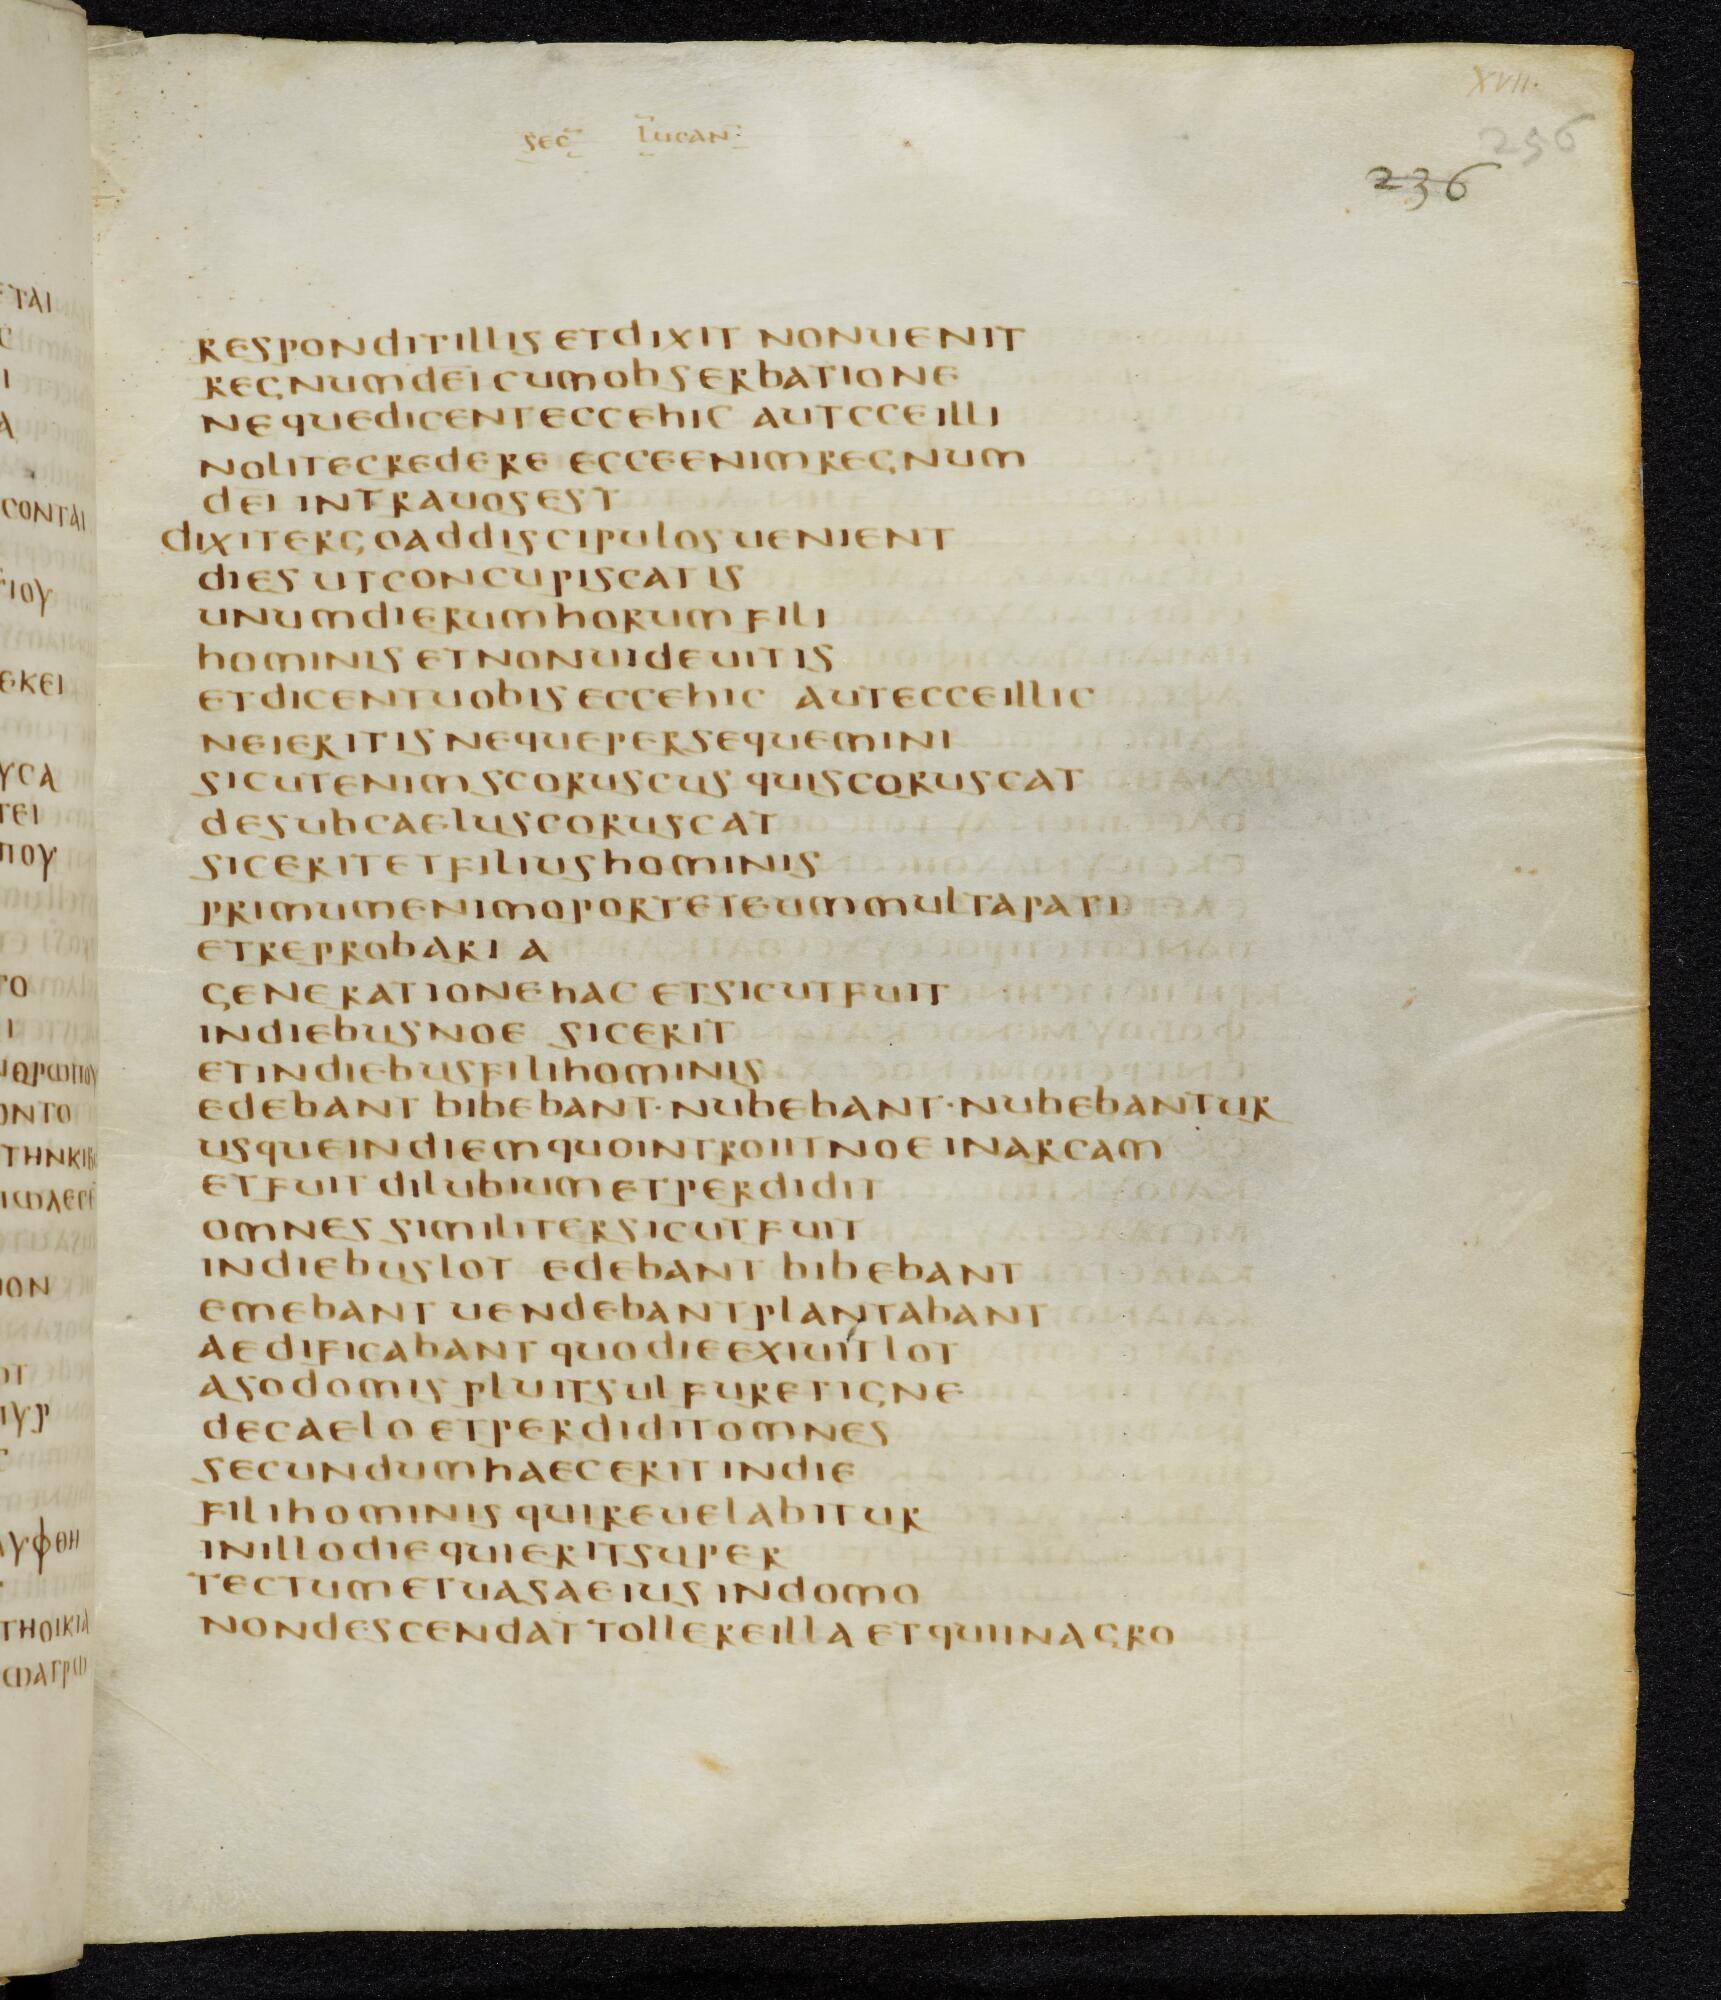 XVII.
SEC LUCAN
256
236
RESPONDIT ILLIS ET DIXIT NON UENIT
REGNUM DEI CUM OBSERBATIONE
NEQUE DICENT ECCE HIC AUT CCE ILLI
NOLITE CREDERE ECCE ENIM REGNUM
DEI INTRA UOS EST
DIXIT ERGO AD DISCIPULOS UENIENT
DIES UT CONCUPISCATIS
UNUM DIERUM HORUM FILI
HOMINIS ET NON UIDEUITIS
ET DICENT UOBIS ECCE HIC AUT ECCE ILLIC
NE IERITIS NEQUE PERSEQUEMINI
SICUT ENIM SCORUSCUS QUI SCORUSCAT
DE SUB CAELU SCORUSCAT
SIC ERIT ET FILIUS HOMINIS
PRIMUM ENIM OPORTET EUM MULTA PATI
ET REPROBARI A
GENERATIONE HAC ET SICUT FUIT
IN DIEBUS NOE SIC ERIT
ET IN DIEBUS FILI HOMINIS
EDEBANT BIBEBANT · NUBEBANT · NUBEBANTUR
USQUE IN DIEM QUO INTROIIT NOE IN ARCAM
ET FUIT DILUBIUM ET PERDIDIT
OMNES SIMILITER SICUT FUIT
IN DIEBUS LOT EDEBANT BIBEBANT
EMEBANT UENDEBANT PLANTABANT
AEDIFICABANT QUO DIE EXIUIT LOT
A SODOMIS PLUIT SULFUR ET IGNE
DE CAELO ET PERDIDIT OMNES
SECUNDUM HAEC ERIT IN DIE
FILI HOMINIS QUI REUELABITUR
IN ILLO DIE QUI ERIT SUPER
TECTUM ET UASA EIUS IN DOMO
NON DESCENDAT TOLLERE ILLA ET QUI IN AGRO